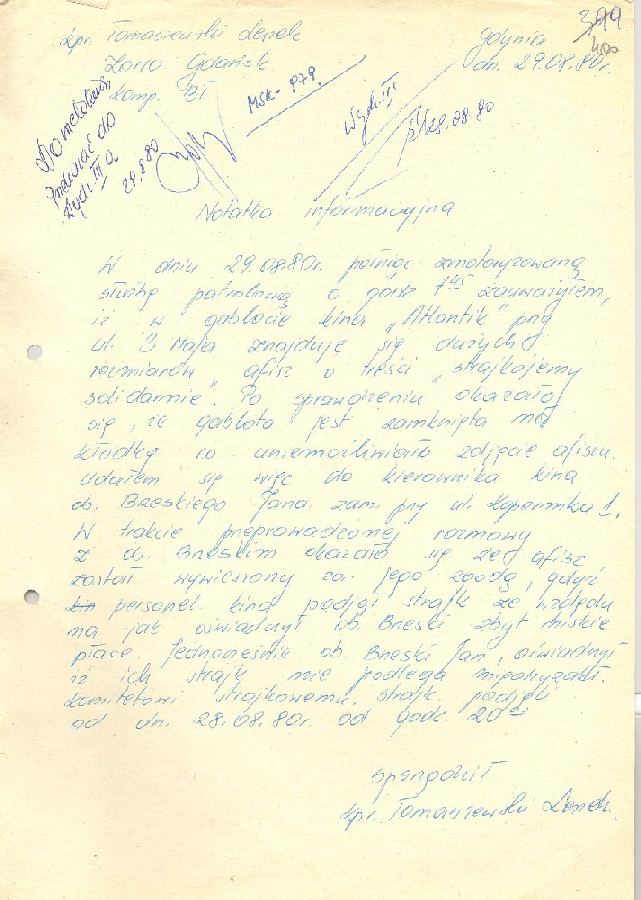 399
400
kpr. Tomaszewski Leszek
Gdynia
dn. 29.08.80r.
Zorro Gdańsk
komp. III
MSK-979.
Do meldunku
Przekazać do
Wydz. III a
29.8.80
Wydz. III
29.08.80
Notatka informacyjna
W dniu 29.08.80r. pełniąc zmotoryzowaną
służbę patrolową o godz 7⁴⁵ zauważyłem,
iż w gablocie kina „Atlantik" przy
ul. 3 Maja znajduje się dużych
rozmiarów afisz o treści „strajkujemy
solidarnie". Po sprawdzeniu okazało
się, że gablota jest zamknięta na
kłódkę co uniemożliwiało zdjęcie afiszu.
Udałem się więc do kierownika kina
ob. Breskiego Jana zam. przy ul. Kopernika 1.
W trakcie przeprowadzonej rozmowy
z ob. Breskim okazało się że afisz
został wywieszony za jego zgodą, gdyż
personel kina podjął strajk ze względu
na jak oświadczył ob. Breski zbyt niskie
płace. Jednocześnie ob. Breski Jan, oświadczył
iż ich strajk nie podlega międzyzakł.
komitetowi strajkowemu. strajk podjęli
od dn. 28.08.80r. od godz 20⁰⁰
sporządził
kpr. Tomaszewski Leszek